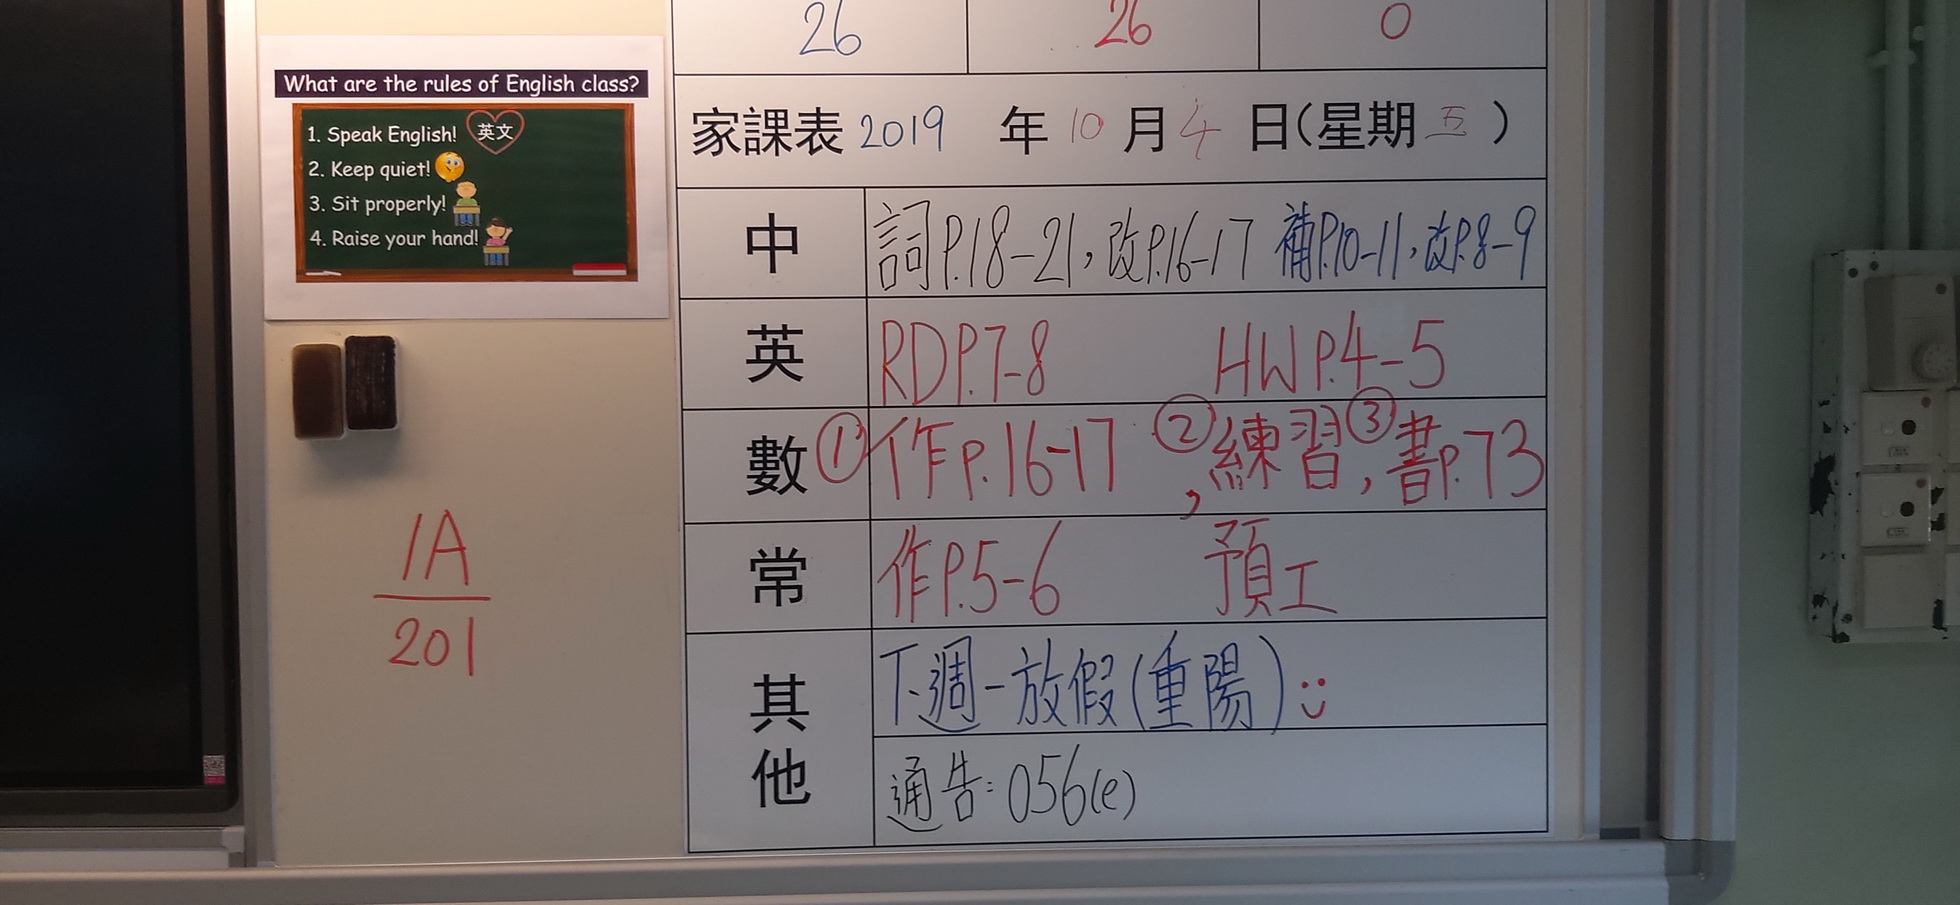 What are the rules of English class?
1. Speak English! 英文
2. Keep quiet!
3. Sit properly!
4. Raise your hand!
1A
201
26 26 0
家課表 2019 年 10 月 4 日(星期 五)
中 詞P.18-21,改P.16-17 補P.10-11,改P.8-9
英 RDP.7-8 HW P.4-5
數 ①作P.16-17 ,②練習,③書P.73
常 作P.5-6 預工
其他 下週一放假(重陽):)
通告:056(e)